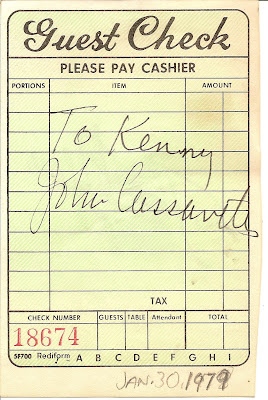 Guest Check
PLEASE PAY CASHIER
PORTIONS ITEM AMOUNT
To Kenny
John Cassavetes
TAX
CHECK NUMBER GUESTS TABLE Attendant TOTAL
18674
5F700 Rediform A B C D E F G H I
JAN. 30, 1979